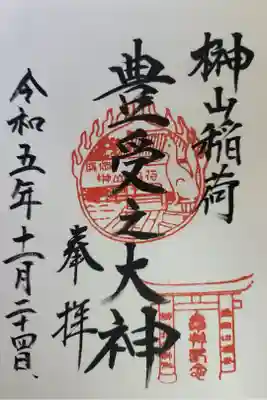 榊山稲荷
豊受之大神
奉拝
令和五年十一月二十四日、